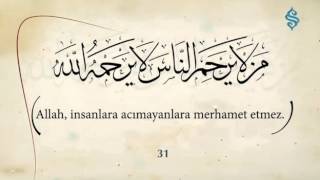 من لا يرحم الناس لا يرحمه الله
(Allah, insanlara acımayanlara merhamet etmez.)
31